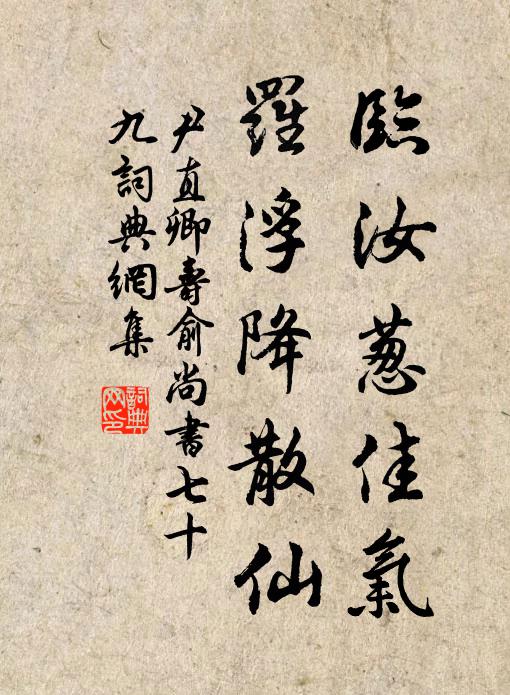 臨汝葱佳氣
羅浮降散仙
尹直卿壽俞尚書七十
九詞典網集
詞典网印